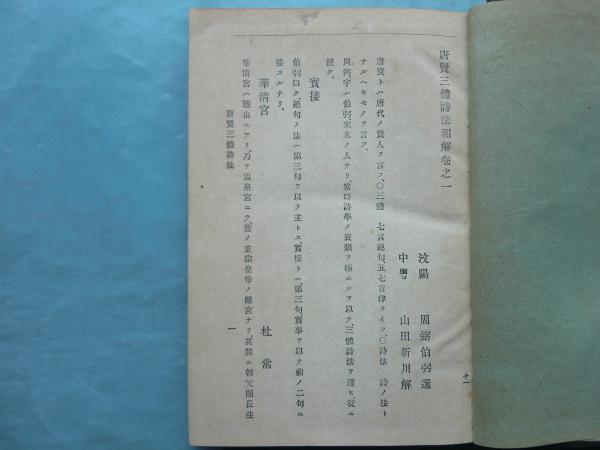 唐賢三體詩法和解卷之一
汶陽 周弼伯弜選
中 山田新川解
唐賢トハ唐代ノ賢人ヲ言フ、〇三體 七言絕句、五七言律ヲイフ、〇詩法 詩ノ法ト
ナルヘキモノヲ言フ、
周弼字ハ伯弜宋末ノ人ナリ、當時詩學ノ衰頽ヲ極ムルヲ以テ、三體詩法ヲ選ヒ、從ニ
授ク、
實接
伯弜曰ク、絕句ノ法ハ第三句ヲ以テ主トス、實接トハ、第三句實事ヲ以テ前ノ二句ニ
接スルナリ、
華清宮 杜常
華清宮ハ驪山ニアリ、乃テ溫泉宮ニテ、唐ノ玄宗皇帝ノ離宮ナリ、其間ニ朝元閣長生
唐賢三體詩法 一
十一